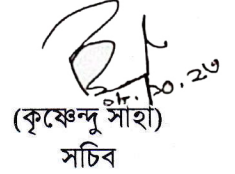 ০৮.১০.২৩
(কৃষ্ণেন্দু সাহা)
সচিব